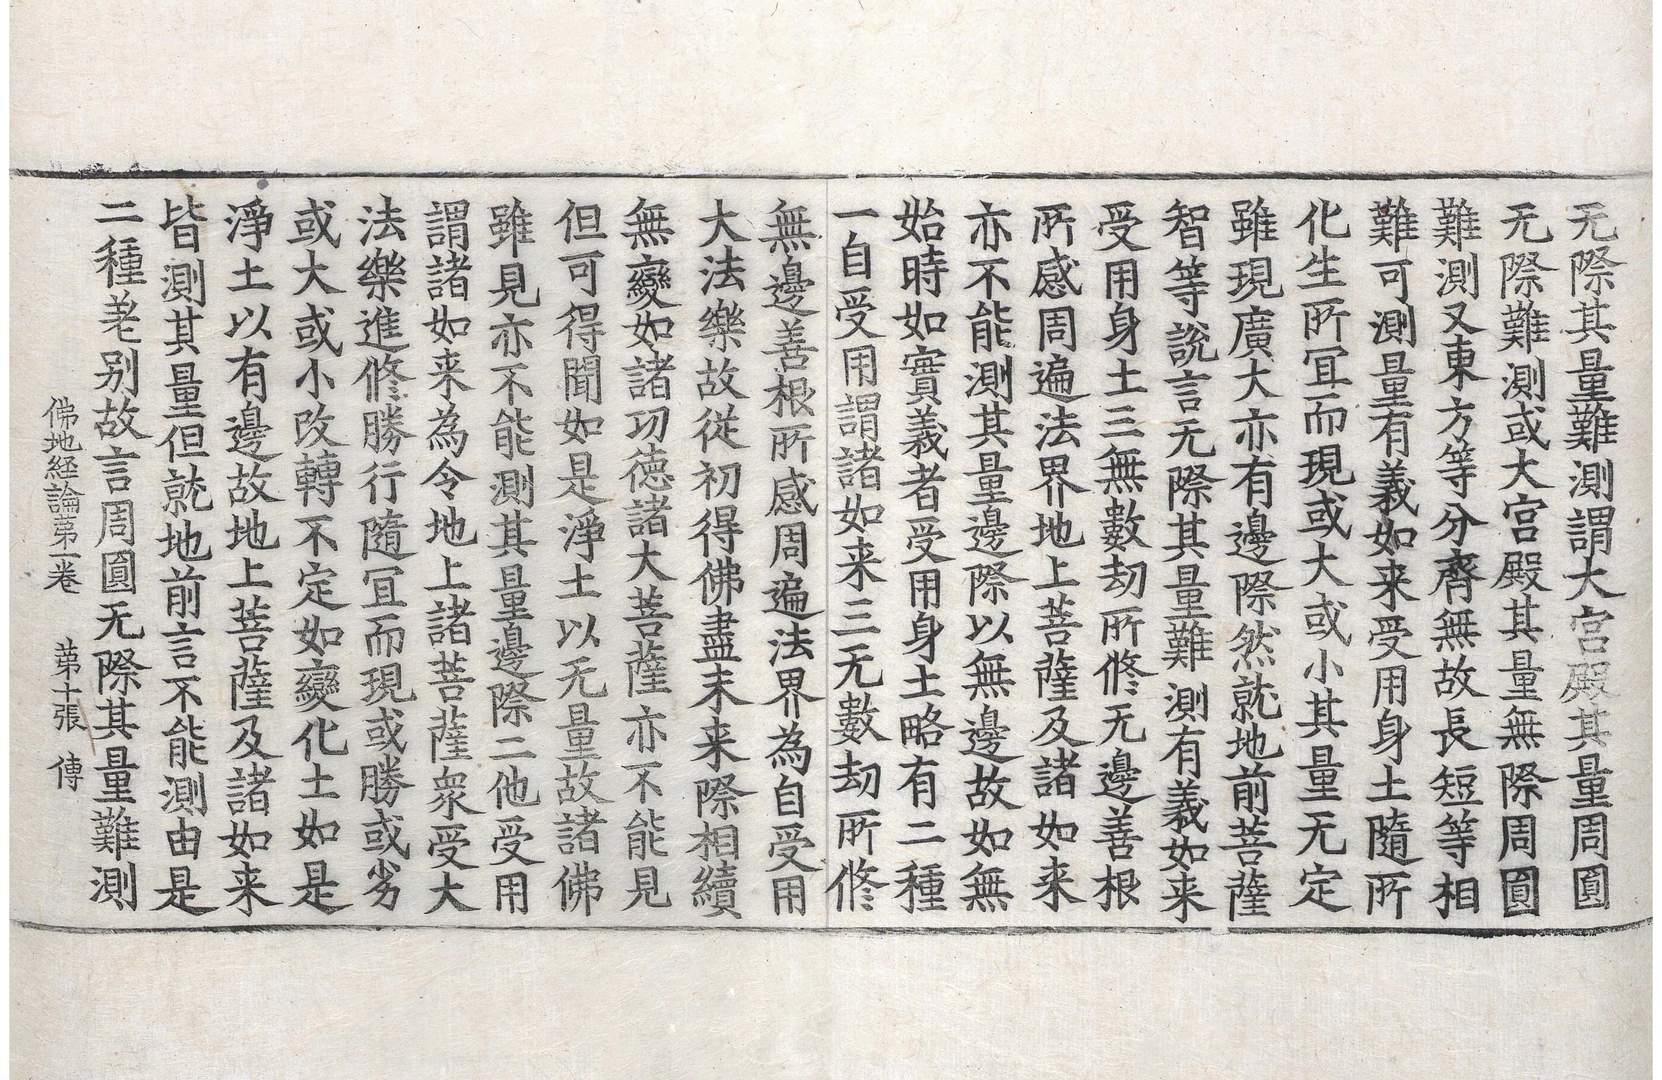 无際其量難測謂大宮殿其量周圓
无際難測或大宮殿其量無際周圓
難測又東方等分齊無故長短等相
難可測量有義如来受用身土隨所
化生所冝而現或大或小其量无定
雖現廣大亦有邊際然就地前菩薩
智等說言无際其量難測有義如来
受用身土三無數劫所修无邊善根
所感周遍法界地上菩薩及諸如来
亦不能測其量邊際以無邊故如無
始時如實義者受用身土略有二種
一自受用謂諸如来三无數劫所修
無邊善根所感周遍法界為自受用
大法樂故從初得佛盡未来際相續
無變如諸㓛徳諸大菩薩亦不能見
但可得聞如是淨土以无量故諸佛
雖見亦不能測其量邊際二他受用
謂諸如来為令地上諸菩薩衆受大
法樂進修勝行隨冝而現或勝或劣
或大或小改轉不定如變化土如是
淨土以有邊故地上菩薩及諸如来
皆測其量但就地前言不能測由是
二種差别故言周圓无際其量難測
佛地経論苐一卷　苐十張　傳